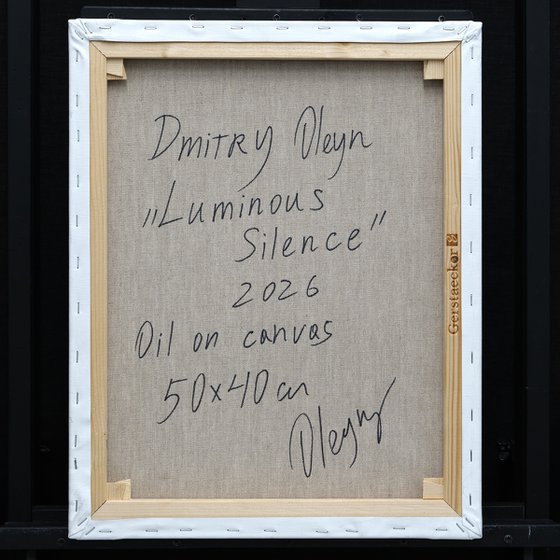 Dmitry Oleyn
„Luminous
Silence”
2026
Oil on canvas
50x40cm
Oleyn
Gerstaecker